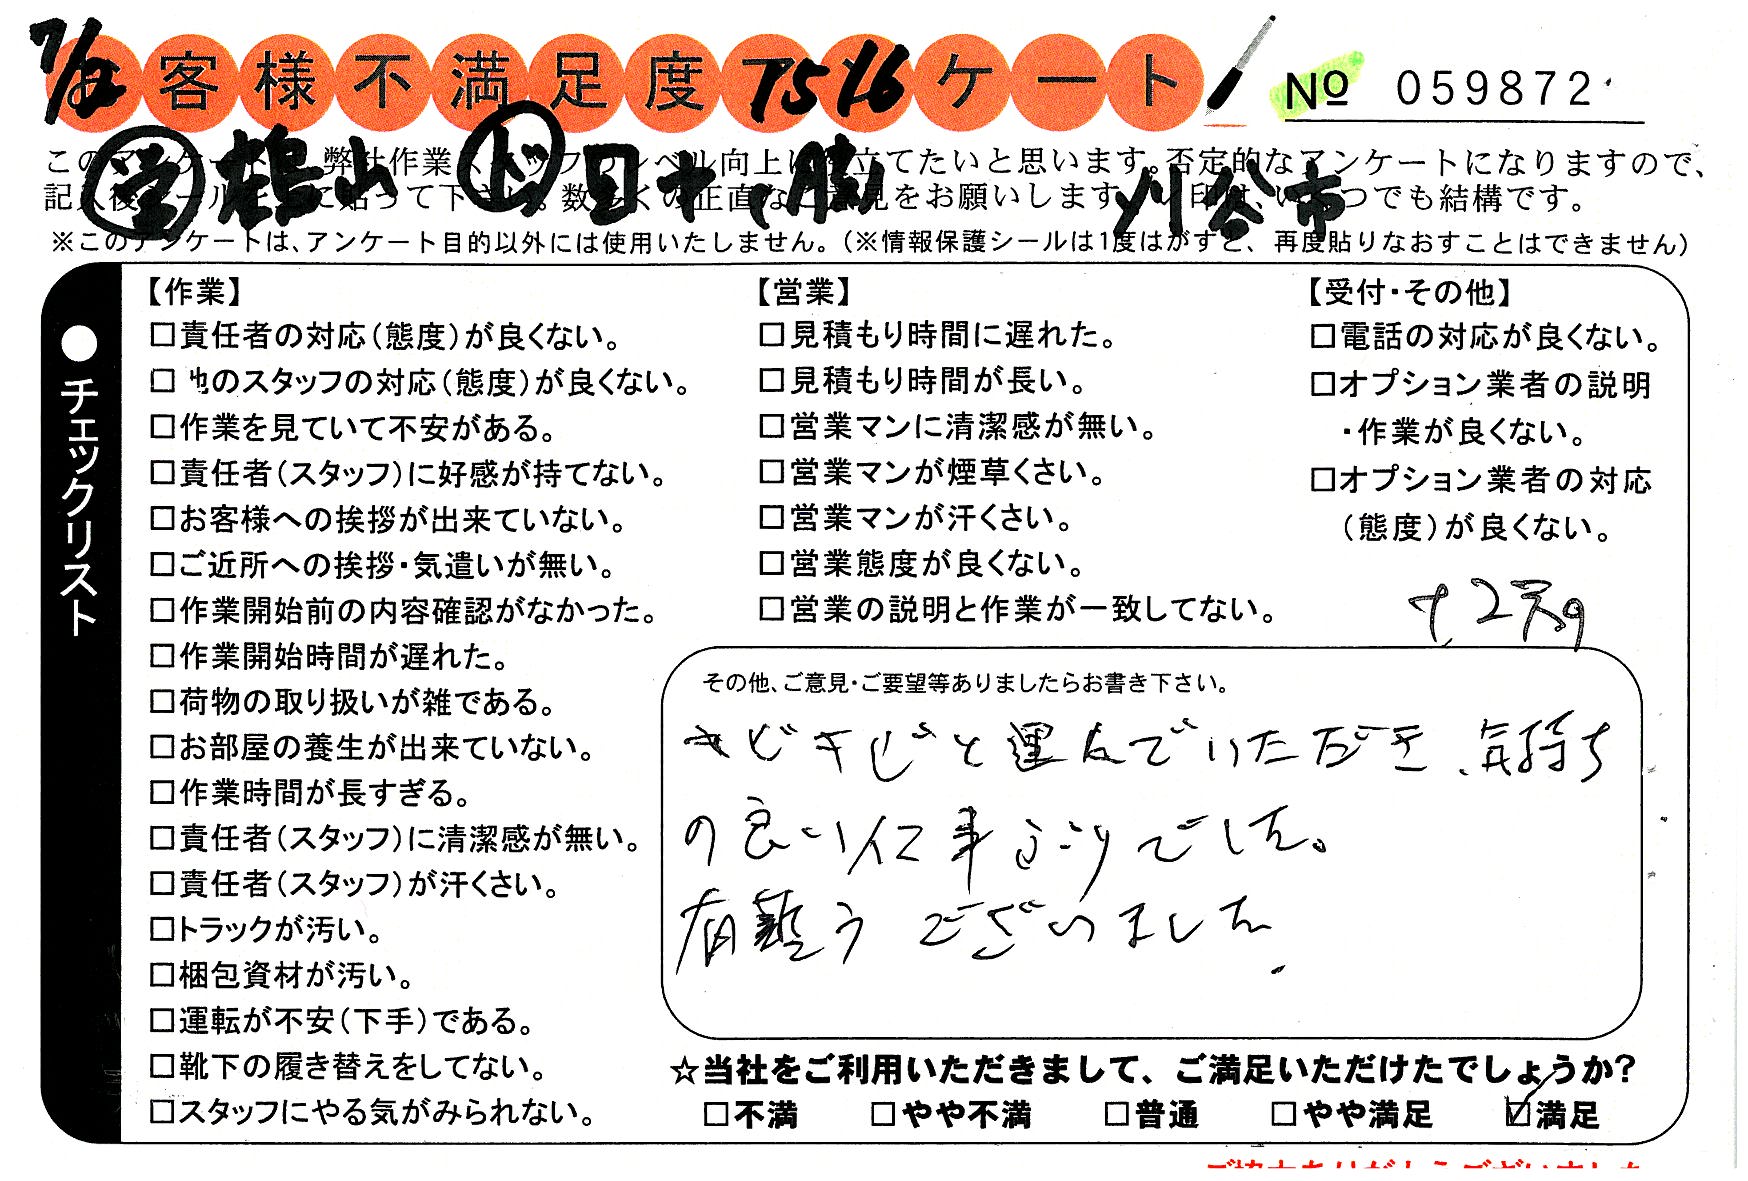 7/2
お客様不満足度アンケート
No 059872
TS 16
営 鶴山 ド 日 刈谷市
このアンケートは、弊社作業スタッフのレベル向上に役立てたいと思います。否定的なアンケートになりますので、
記入後シールを 貼って下さい。数多くの正直なご意見をお願いします。レ印は、いくつでも結構です。
※このアンケートは、アンケート目的以外には使用いたしません。(※情報保護シールは1度はがすと、再度貼りなおすことはできません)
●チェックリスト
【作業】
□責任者の対応(態度)が良くない。
□他のスタッフの対応(態度)が良くない。
□作業を見ていて不安がある。
□責任者(スタッフ)に好感が持てない。
□お客様への挨拶が出来ていない。
□ご近所への挨拶・気遣いが無い。
□作業開始前の内容確認がなかった。
□作業開始時間が遅れた。
□荷物の取り扱いが雑である。
□お部屋の養生が出来ていない。
□作業時間が長すぎる。
□責任者(スタッフ)に清潔感が無い。
□責任者(スタッフ)が汗くさい。
□トラックが汚い。
□梱包資材が汚い。
□運転が不安(下手)である。
□靴下の履き替えをしてない。
□スタッフにやる気がみられない。
【営業】
□見積もり時間に遅れた。
□見積もり時間が長い。
□営業マンに清潔感が無い。
□営業マンが煙草くさい。
□営業マンが汗くさい。
□営業態度が良くない。
□営業の説明と作業が一致してない。
【受付・その他】
□電話の対応が良くない。
□オプション業者の説明
・作業が良くない。
□オプション業者の対応
(態度)が良くない。
その他、ご意見・ご要望等ありましたらお書き下さい。
キビキビと運んでいただき、気持ち
の良い仕事ぶりでした。
有難うございました.
☆当社をご利用いただきまして、ご満足いただけたでしょうか?
□不満 □やや不満 □普通 □やや満足 ☑満足
ご協力ありがとうございました